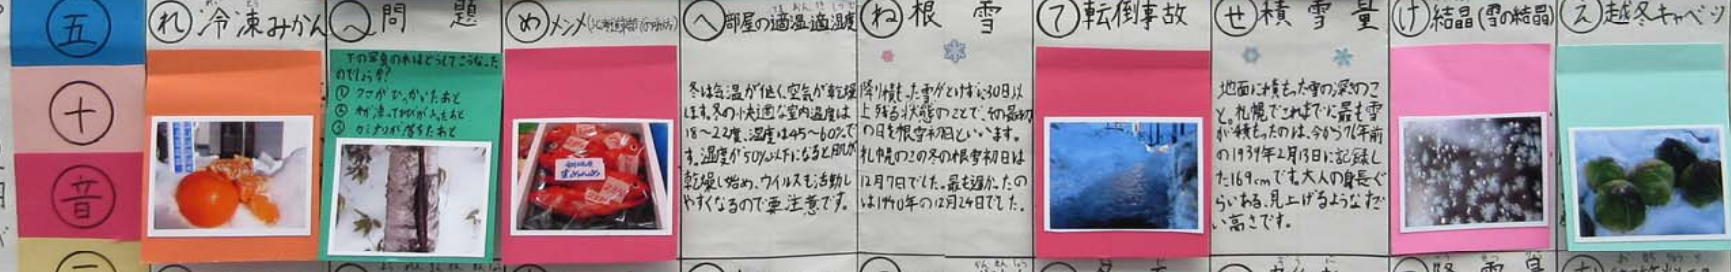 五
十
音
れ 冷凍みかん
問題
下の写真の木はどうしてこうなった
のでしょう?
① クマがひっかいたあと
③ カミナリが落ちたあと
め メンメ
へ 部屋の適温適湿度
冬は気温が低く、空気が乾燥
します。冬の快適な室内温度は
18〜22度、湿度は45〜60%で
す。湿度が50%以下になると肌が
乾燥し始め、ウイルスも活動し
やすくなるので要注意です。
ね 根雪
降り積もった雪がとけずに30日以
上残る状態のことで、その最初
の日を根雪初日といいます。
札幌のこの冬の根雪初日は
12月7日でした。最も遅かったの
は1940年の12月24日でした。
て 転倒事故
せ 積雪量
地面に積もった雪の深さのこ
と。札幌でこれまでに最も雪
が積もったのは、今から76年前
の1939年2月13日に記録し
た169cmです。大人の身長ぐ
らいある、見上げるようなすご
い高さです。
け 結晶(雪の結晶)
え 越冬キャベツ